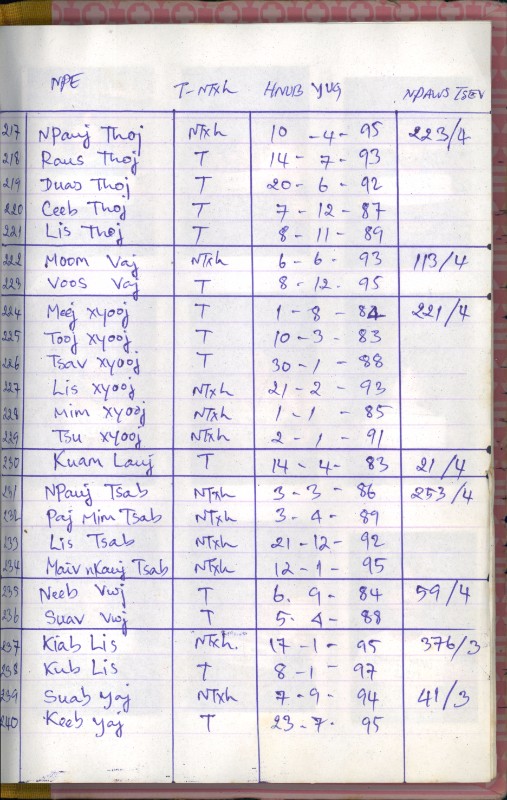 NPE T-NTxh HNUB YUG NPAWS TSEV
217 NPauj Thoj NTxh 10 - 4 - 95 223/4
218 Raus Thoj T 14 - 7 - 93
219 Duas Thoj T 20 - 6 - 92
220 Ceeb Thoj T 7 - 12 - 87
221 Lis Thoj T 8 - 11 - 89
222 Moom Vaj NTxh 6 - 6 - 93 113/4
223 Voos Vaj T 8 - 12 - 95
224 Meej Xyooj T 1 - 8 - 84 221/4
225 Tooj Xyooj T 10 - 3 - 83
226 Tsav Xyooj T 30 - 1 - 88
227 Lis Xyooj NTxh 21 - 2 - 93
228 Mim Xyooj NTxh 1 - 1 - 85
229 Tsu Xyooj NTxh 2 - 1 - 91
230 Kuam Lauj T 14 - 4 - 83 21/4
231 NPauj Tsab NTxh 3 - 3 - 86 253/4
232 Paj Mim Tsab NTxh 3 - 4 - 89
233 Lis Tsab NTxh 21 - 12 - 92
234 Maiv nKauj Tsab NTxh 12 - 1 - 95
235 Neeb Vwj T 6 - 9 - 84 59/4
236 Suav Vwj T 5 - 4 - 88
237 Kiab Lis NTxh. 17 - 1 - 95 376/3
238 Kub Lis T 8 - 1 - 97
239 Suab Yaj NTxh 7 - 9 - 94 41/3
240 Keeb Yaj T 23 - 7 - 95